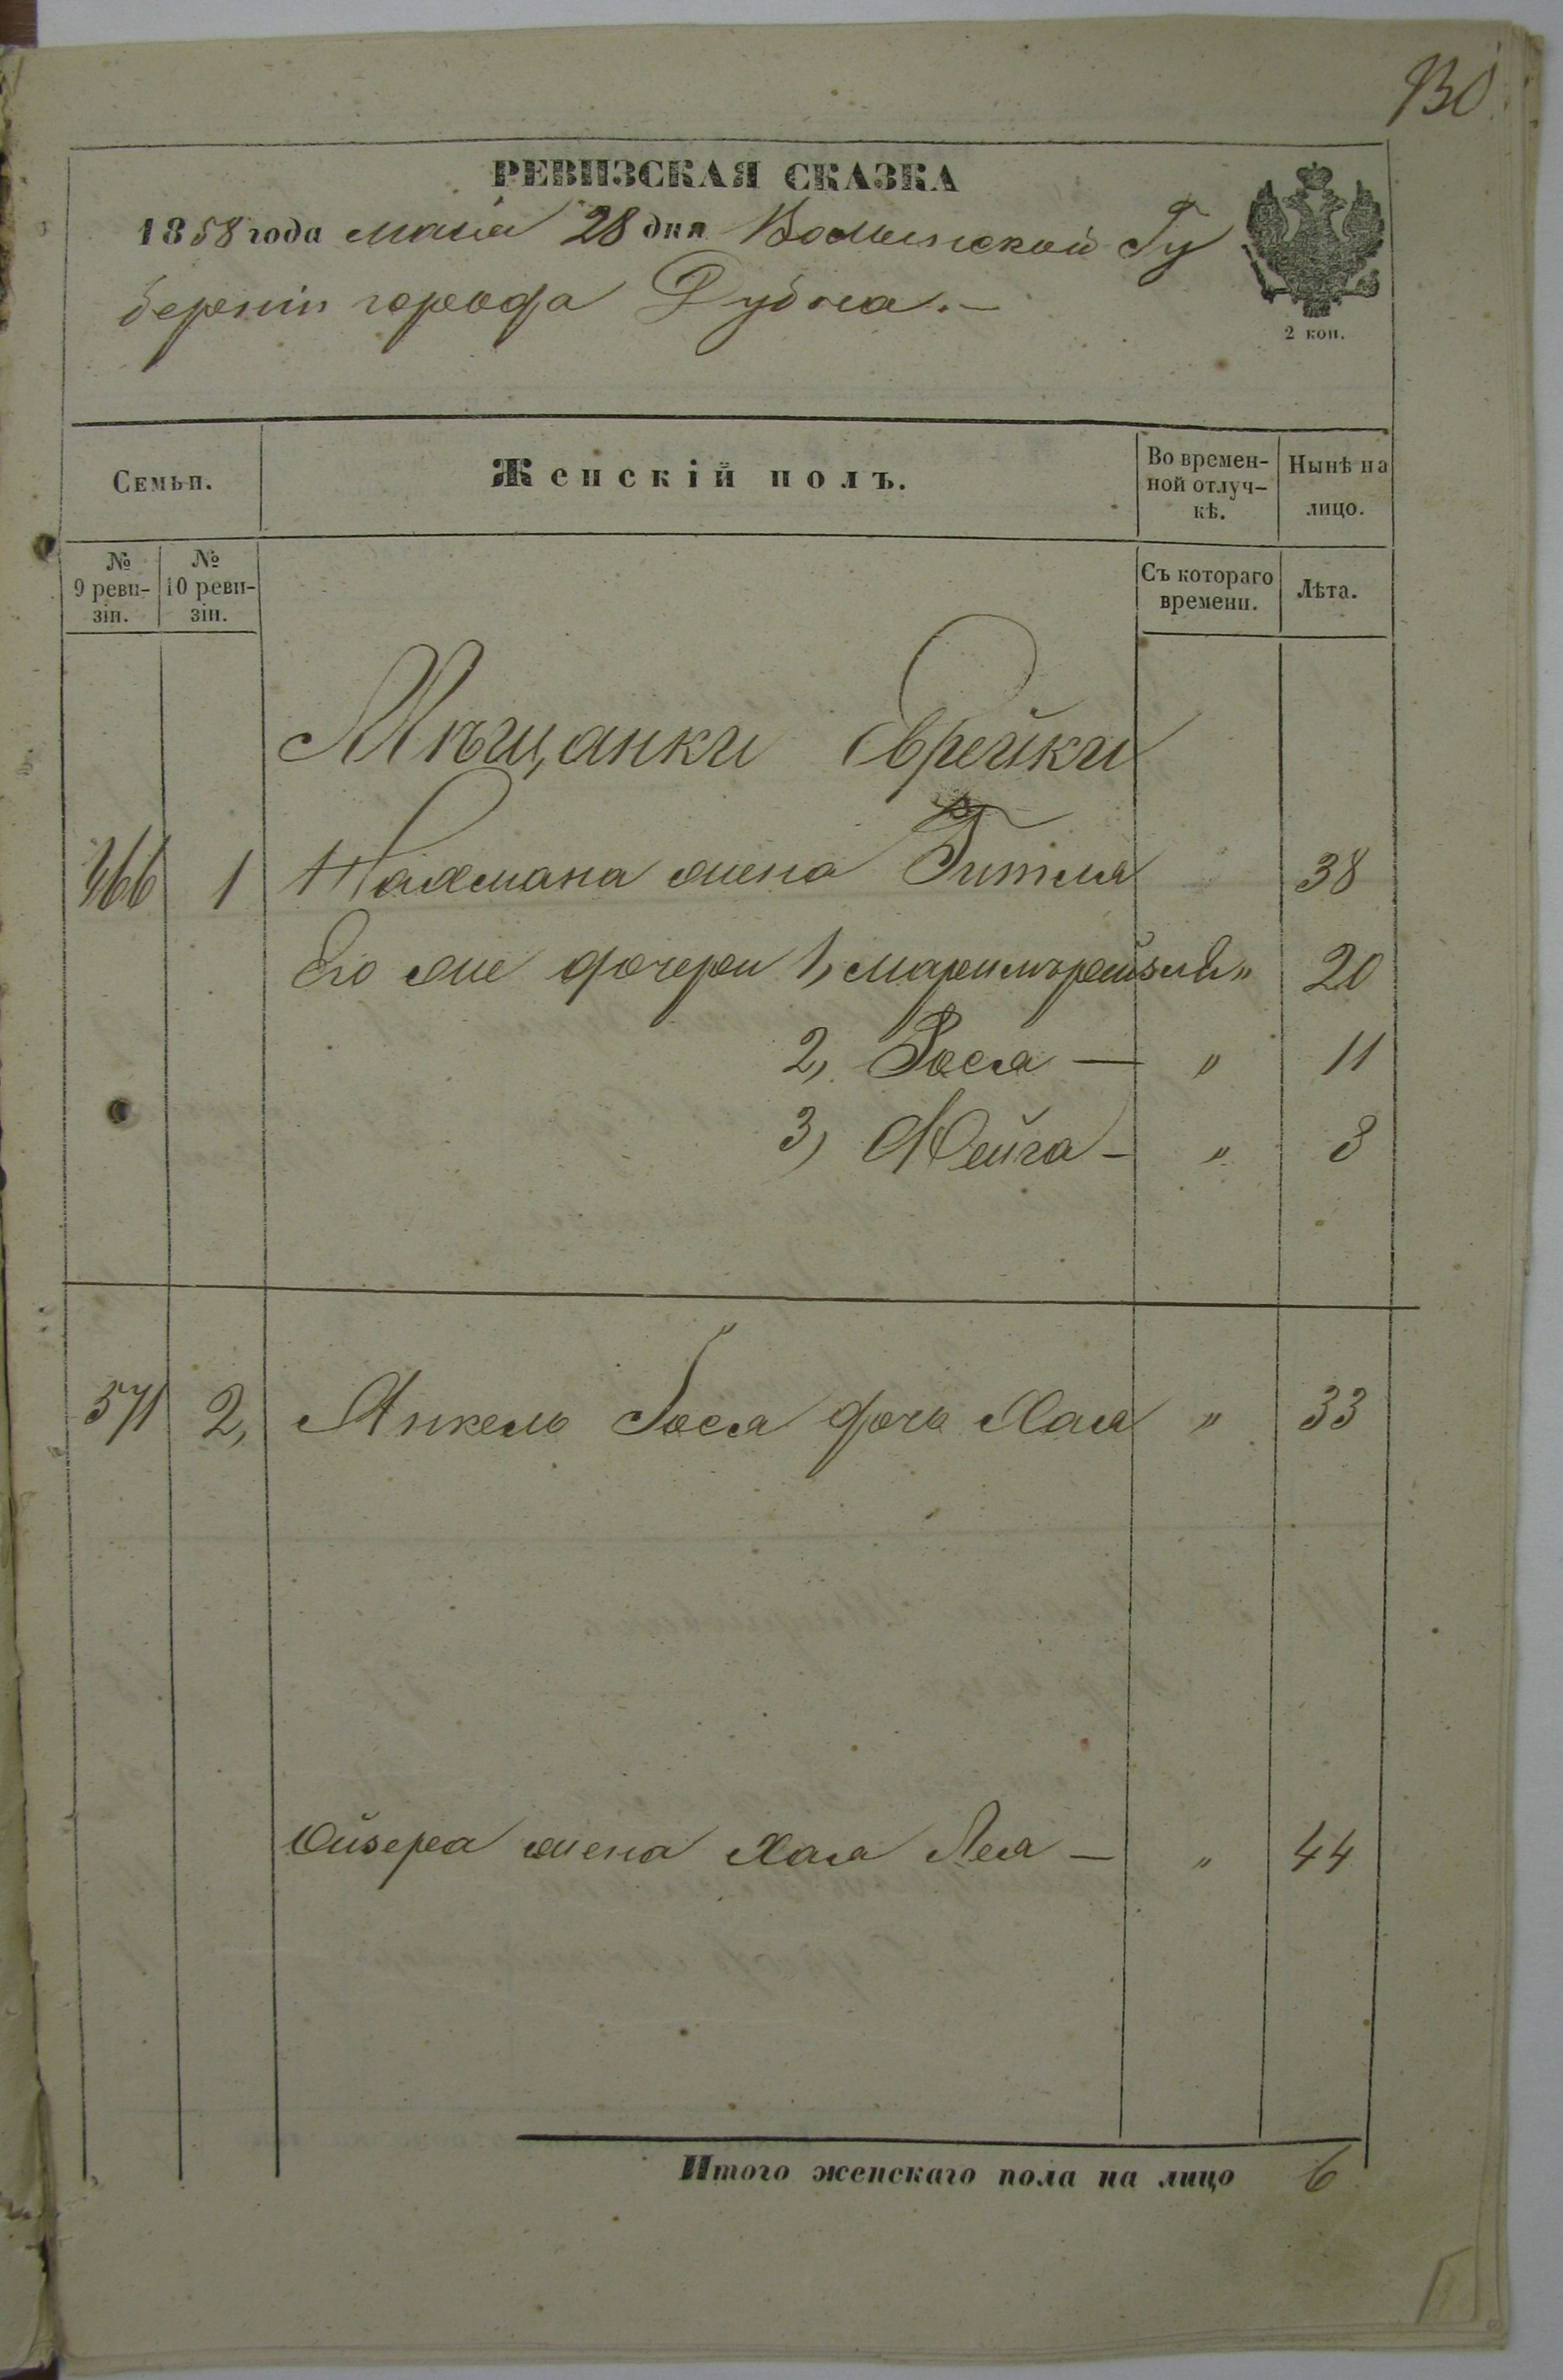 130
РЕВИЗСКАЯ СКАЗКА
1858 года маия 28 дня Волынской Гу
берніи города Дубна.—
2 коп.
Семьи.
Женскій полъ.
Во времен-
ной отлуч-
кѣ.
Нынѣ на
лицо.
№
9 реви-
зіи.
№
10 реви-
зіи.
Съ котораго
времени.
Лѣта.
Мѣщанки Еврейки
1 Нахмана жена Гитля 38
Его же дочери 1, " 20
2, Рося — " 11
3) Фейга — " 8
571 2, Янкель дочь Хая " 33
Ойзера жена Хая Лея — " 44
Итого женскаго пола на лицо 6